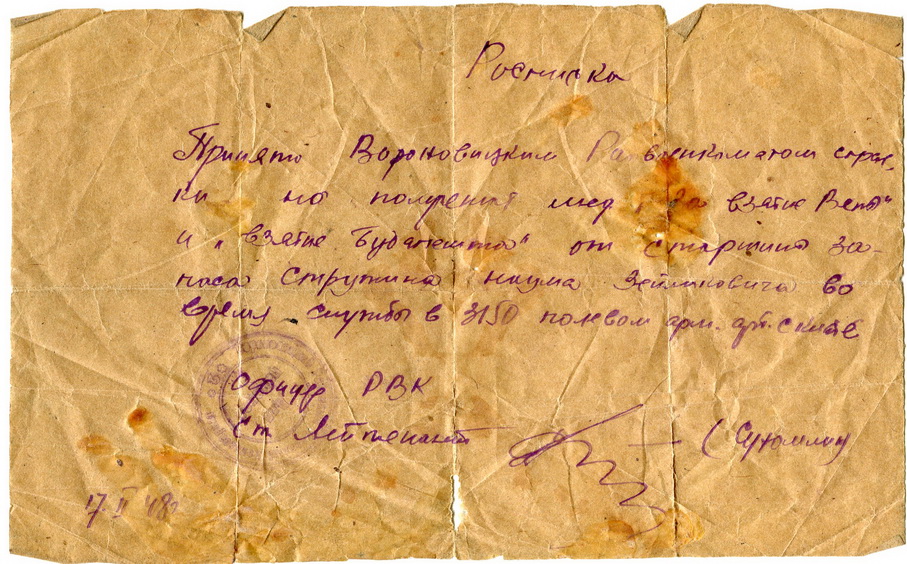 Росписка
Принято Вороновицким Райвоенкоматом справ,
ки на получения мед „за взятие Вены"
и „взятие Будапешта" от старшина за-
паса Струтина наума Зейликовича во
время службы в 3150 полевом арм. арт. складе
Офицер РВК
Ст Лейтенант (Сухомлин)
17. II 48г